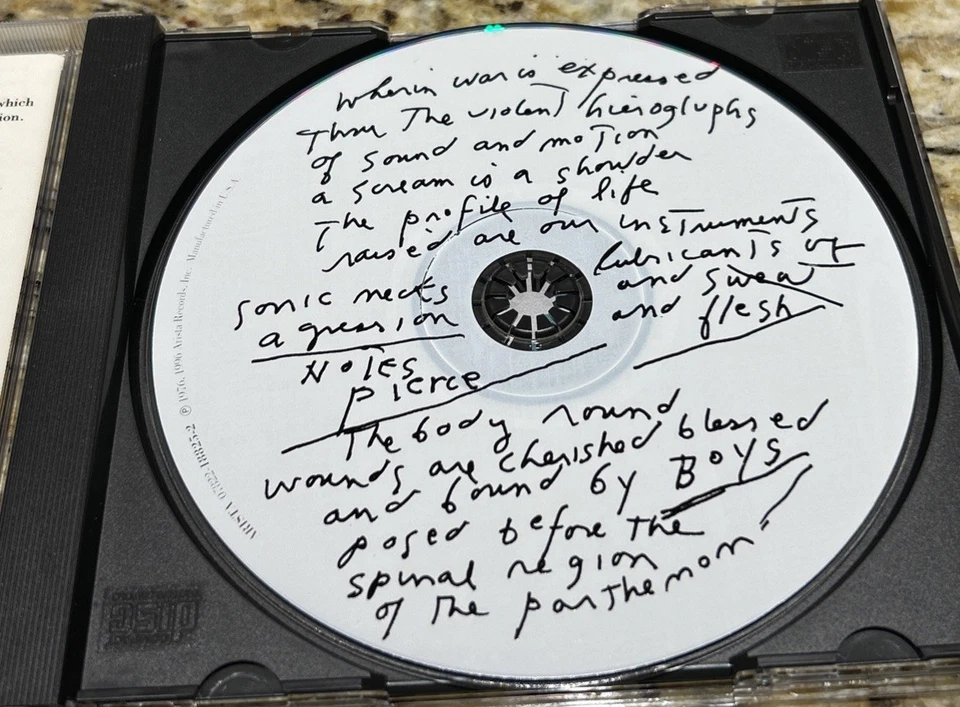 which
ion.
wherin war is expressed
Thru The violent hieroglyphs
of sound and motion
a scream is a shoulder
The profile of life
raised are our instruments
sonic necks
lubricants of
agression
and sweat
and flesh
Notes
pierce
The body round
wounds are cherished blessed
and bound by BOYS
posed before The
spinal region
of The parthenon"
ARISTA 07822-18825-2 ℗ 1976, 1996 Arista Records, Inc. Manufactured in USA
COMPACT
disc